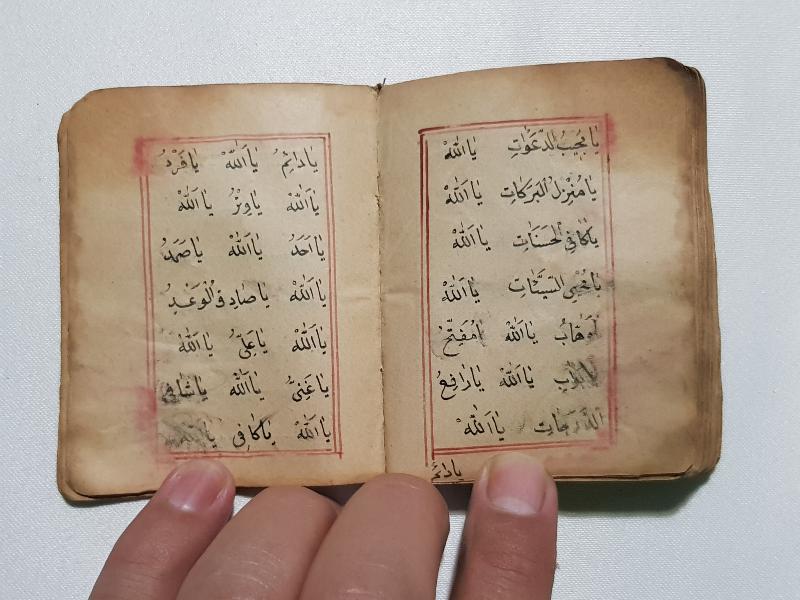 يَا مُجِيبَ الدَّعَوَاتِ يَا اَللّٰهْ
يَا مُنْزِلَ الْبَرَكَاتِ يَا اَللّٰهْ
يَا كَافِيَ الْحَسَنَاتِ يَا اَللّٰهْ
السَّيِّئَاتِ يَا اَللّٰهْ
وَهَّابُ يَا اَللّٰهْ مُفَتِّحُ
يَا اَللّٰهْ يَا رَافِعُ
الدَّرَجَاتِ يَا اَللّٰهْ
يَا دَائِمُ
يَا دَائِمُ يَا اَللّٰهْ يَا فَرْدُ
يَا اَللّٰهْ يَا وِتْرُ يَا اَللّٰهْ
يَا اَحَدُ يَا اَللّٰهْ يَا صَمَدُ
يَا اَللّٰهْ يَا صَادِقَ الْوَعْدِ
يَا اَللّٰهْ يَا عَلِيُّ يَا اَللّٰهْ
يَا غَنِيُّ يَا اَللّٰهْ يَا شَافِي
يَا اَللّٰهْ يَا كَافِي